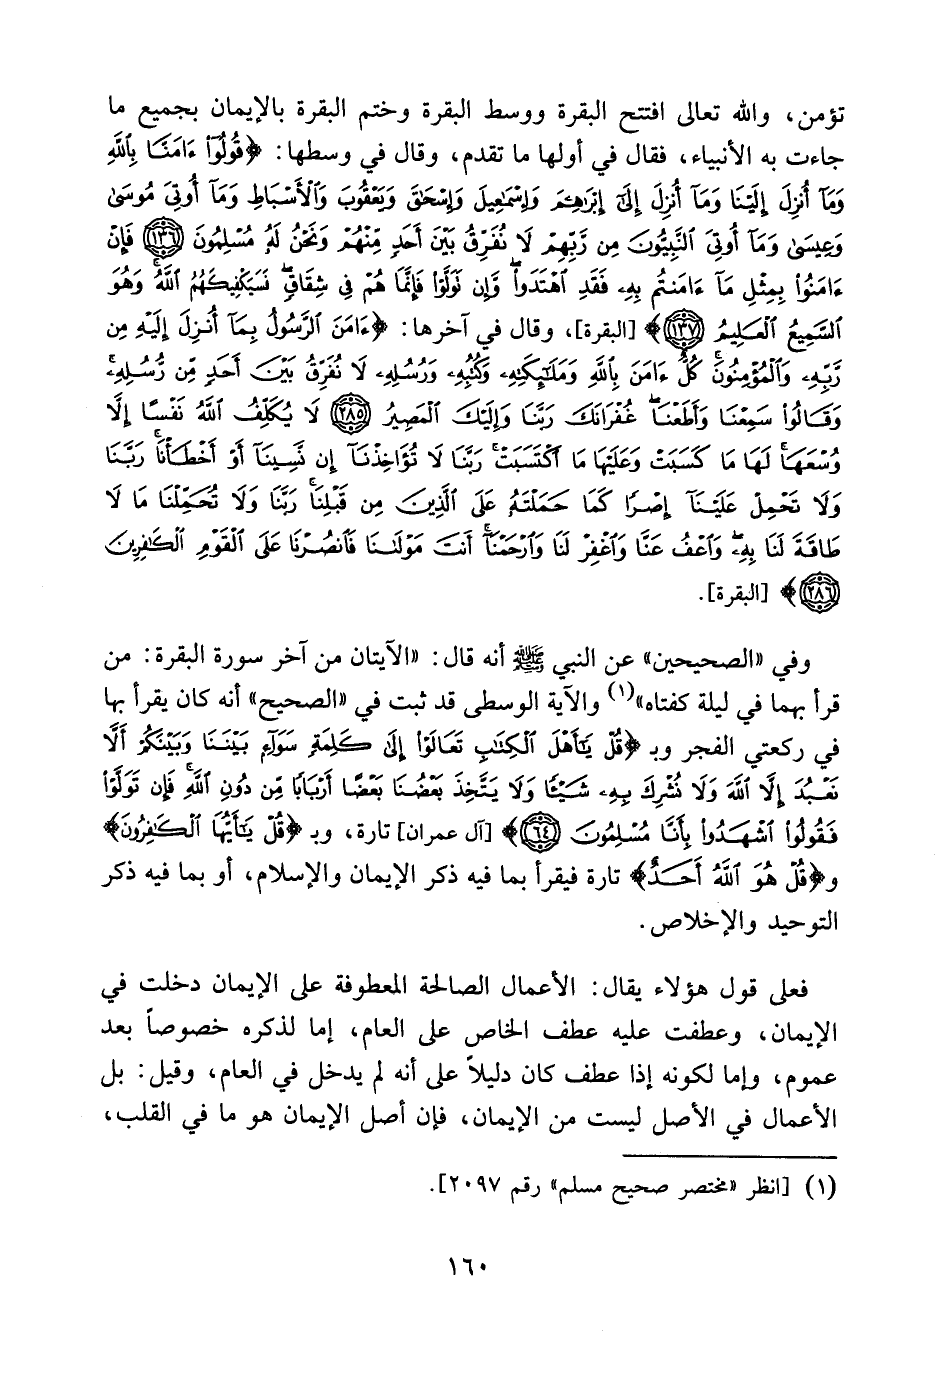 تؤمن، والله تعالى افتتح البقرة ووسط البقرة وختم البقرة بالإيمان بجميع ما
جاءت به الأنبياء، فقال في أولها ما تقدم، وقال في وسطها: ﴿قُولُوٓاْ ءَامَنَّا بِٱللَّهِ
وَمَآ أُنزِلَ إِلَيْنَا وَمَآ أُنزِلَ إِلَىٰٓ إِبْرَٰهِـۧمَ وَإِسْمَٰعِيلَ وَإِسْحَٰقَ وَيَعْقُوبَ وَٱلْأَسْبَاطِ وَمَآ أُوتِىَ مُوسَىٰ
وَعِيسَىٰ وَمَآ أُوتِىَ ٱلنَّبِيُّونَ مِن رَّبِّهِمْ لَا نُفَرِّقُ بَيْنَ أَحَدٍ مِّنْهُمْ وَنَحْنُ لَهُۥ مُسْلِمُونَ ١٣٦ فَإِنْ
ءَامَنُواْ بِمِثْلِ مَآ ءَامَنتُم بِهِۦ فَقَدِ ٱهْتَدَواْ ۖ وَّإِن تَوَلَّوْاْ فَإِنَّمَا هُمْ فِى شِقَاقٍ ۖ فَسَيَكْفِيكَهُمُ ٱللَّهُ ۚ وَهُوَ
ٱلسَّمِيعُ ٱلْعَلِيمُ ١٣٧﴾ [البقرة]، وقال في آخرها: ﴿ءَامَنَ ٱلرَّسُولُ بِمَآ أُنزِلَ إِلَيْهِ مِن
رَّبِّهِۦ وَٱلْمُؤْمِنُونَ ۚ كُلٌّ ءَامَنَ بِٱللَّهِ وَمَلَٰٓئِكَتِهِۦ وَكُتُبِهِۦ وَرُسُلِهِۦ لَا نُفَرِّقُ بَيْنَ أَحَدٍ مِّن رُّسُلِهِۦ ۚ
وَقَالُواْ سَمِعْنَا وَأَطَعْنَا ۖ غُفْرَانَكَ رَبَّنَا وَإِلَيْكَ ٱلْمَصِيرُ ٢٨٥ لَا يُكَلِّفُ ٱللَّهُ نَفْسًا إِلَّا
وُسْعَهَا ۚ لَهَا مَا كَسَبَتْ وَعَلَيْهَا مَا ٱكْتَسَبَتْ ۗ رَبَّنَا لَا تُؤَاخِذْنَآ إِن نَّسِينَآ أَوْ أَخْطَأْنَا ۚ رَبَّنَا
وَلَا تَحْمِلْ عَلَيْنَآ إِصْرًا كَمَا حَمَلْتَهُۥ عَلَى ٱلَّذِينَ مِن قَبْلِنَا ۚ رَبَّنَا وَلَا تُحَمِّلْنَا مَا لَا
طَاقَةَ لَنَا بِهِۦ ۖ وَٱعْفُ عَنَّا وَٱغْفِرْ لَنَا وَٱرْحَمْنَآ ۚ أَنتَ مَوْلَىٰنَا فَٱنصُرْنَا عَلَى ٱلْقَوْمِ ٱلْكَٰفِرِينَ
٢٨٦﴾ [البقرة].
وفي «الصحيحين» عن النبي ﷺ أنه قال: «الآيتان من آخر سورة البقرة: من
قرأ بهما في ليلة كفتاه»(١) والآية الوسطى قد ثبت في «الصحيح» أنه كان يقرأ بها
في ركعتي الفجر وبـ ﴿قُلْ يَٰٓأَهْلَ ٱلْكِتَٰبِ تَعَالَوْاْ إِلَىٰ كَلِمَةٍ سَوَآءٍۭ بَيْنَنَا وَبَيْنَكُمْ أَلَّا
نَعْبُدَ إِلَّا ٱللَّهَ وَلَا نُشْرِكَ بِهِۦ شَيْـًٔا وَلَا يَتَّخِذَ بَعْضُنَا بَعْضًا أَرْبَابًا مِّن دُونِ ٱللَّهِ ۚ فَإِن تَوَلَّوْاْ
فَقُولُواْ ٱشْهَدُواْ بِأَنَّا مُسْلِمُونَ ٦٤﴾ [آل عمران] تارة، وبـ ﴿قُلْ يَٰٓأَيُّهَا ٱلْكَٰفِرُونَ﴾
و﴿قُلْ هُوَ ٱللَّهُ أَحَدٌ﴾ تارة فيقرأ بما فيه ذكر الإيمان والإسلام، أو بما فيه ذكر
التوحيد والإخلاص.
فعلى قول هؤلاء يقال: الأعمال الصالحة المعطوفة على الإيمان دخلت في
الإيمان، وعطفت عليه عطف الخاص على العام، إما لذكره خصوصاً بعد
عموم، وإما لكونه إذا عطف كان دليلاً على أنه لم يدخل في العام، وقيل: بل
الأعمال في الأصل ليست من الإيمان، فإن أصل الإيمان هو ما في القلب،
(١) [انظر «مختصر صحيح مسلم» رقم ٢٠٩٧].
١٦٠